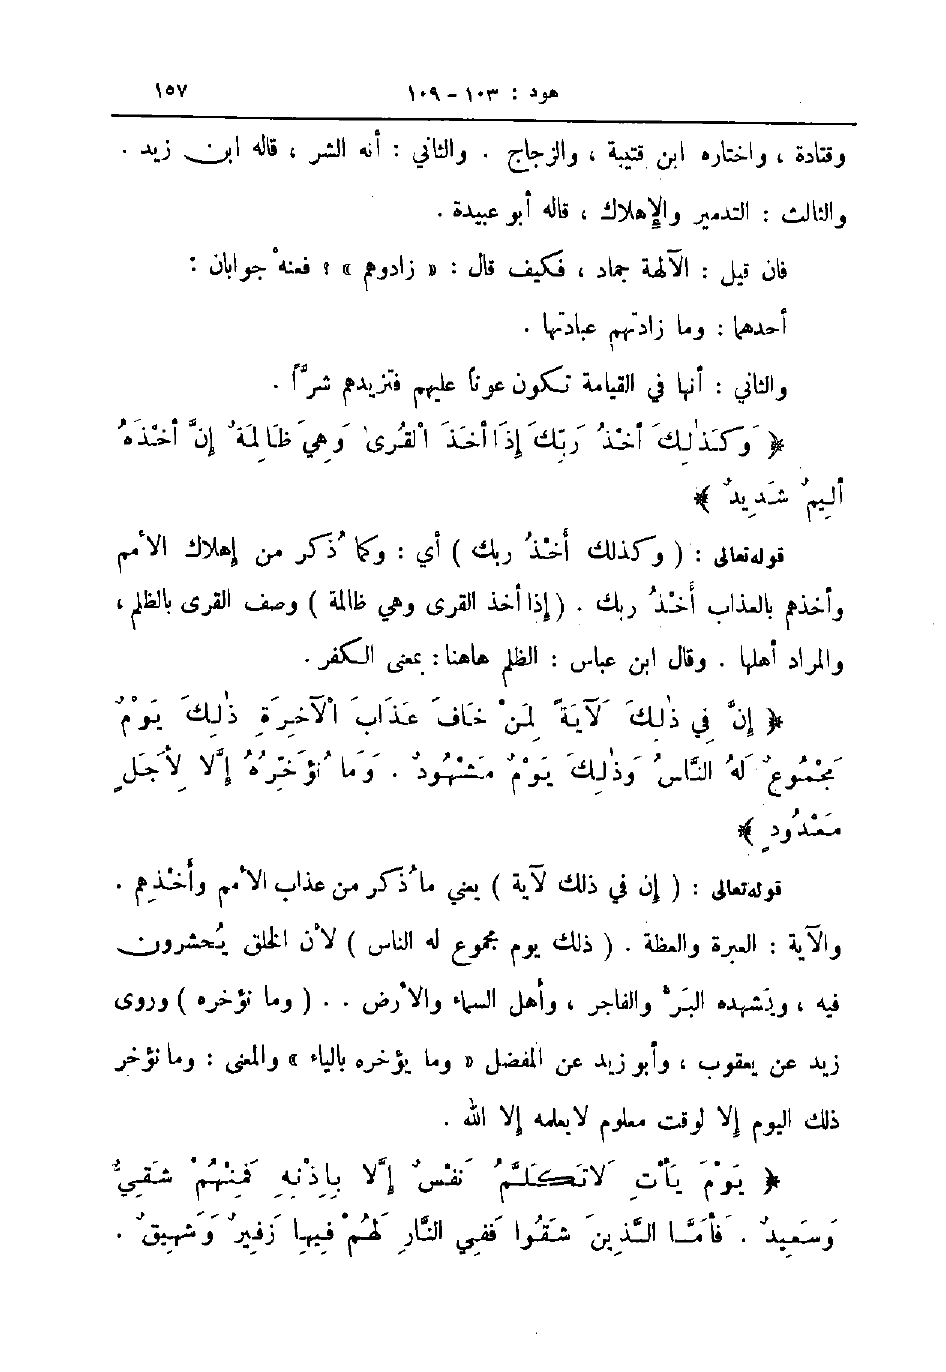 هود : ١٠٣ - ١٠٩ ١٥٧
وقتادة ، واختاره ابن قتيبة ، والزجاج . والثاني : أنه الشر ، قاله ابن زيد .
والثالث : التدمير والإهلاك ، قاله أبو عبيدة .
فان قيل : الآلهة جماد ، فكيف قال : « زادوهم » ؟ فعنه جوابان :
أحدهما : وما زادتهم عبادتها .
والثاني : أنها في القيامة تكون عوناً عليهم فتزيدهم شرّاً .
﴿ وَكَذٰلِكَ أَخْذُ رَبِّكَ إِذَا أَخَذَ الْقُرىٰ وَهِيَ ظَالِمَةٌ إِنَّ أَخْذَهُ
أَلِيمٌ شَدِيدٌ ﴾
قوله تعالى : ( وكذلك أَخْذُ ربك ) أي : وكما ُذكر من إهلاك الأمم
وأخذهم بالعذاب أَخْذُ ربك . ( إذا أخذ القرى وهي ظالمة ) وصف القرى بالظلم ،
والمراد أهلها . وقال ابن عباس : الظلم هاهنا : بمعنى الكفر .
﴿ إِنَّ فِي ذٰلِكَ لَآيَةً لِمَنْ خَافَ عَذَابَ الْآخِرَةِ ذٰلِكَ يَوْمٌ
مَجْمُوعٌ لَهُ النَّاسُ وَذٰلِكَ يَوْمٌ مَشْهُودٌ . وَمَا نُؤَخِّرُهُ إِلَّا لِأَجَلٍ
مَعْدُودٍ ﴾
قوله تعالى : ( إن في ذلك لآية ) يعني ما ُذكر من عذاب الأمم وأَخْذِهم .
والآية : العبرة والعظة . ( ذلك يوم مجموع له الناس ) لأن الخلق يُحشرون
فيه ، ويَشهده البَرّ والفاجر ، وأهل السماء والأرض . . ( وما نؤخره ) وروى
زيد عن يعقوب ، وأبو زيد عن المفضل « وما يؤخره بالياء » والمعنى : وما نؤخر
ذلك اليوم إلا لوقت معلوم لايعلمه إلا الله .
﴿ يَوْمَ يَأْتِ لَاتَكَلَّمُ نَفْسٌ إِلَّا بِإِذْنِهِ فَمِنْهُمْ شَقِيٌّ
وَسَعِيدٌ . فَأَمَّا الَّذِينَ شَقُوا فَفِي النَّارِ لَهُمْ فِيهَا زَفِيرٌ وَشَهِيقٌ .